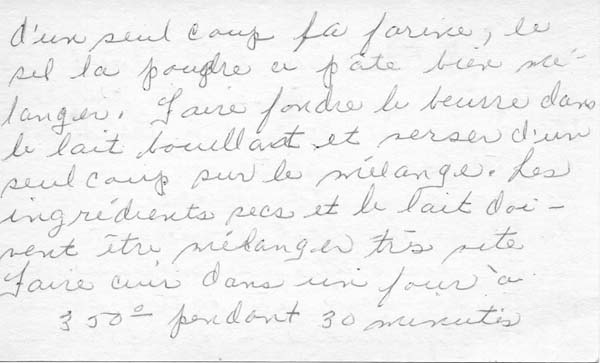 d'un seul coup la farine, le
sel la poudre a pâte bien mé-
langer. Faire fondre le beurre dans
le lait bouillant et verser d'un
seul coup sur le mélange. Les
ingrédients secs et le lait doi-
vent être mélanger très vite
Faire cuir dans un four à
350° pendant 30 minutes